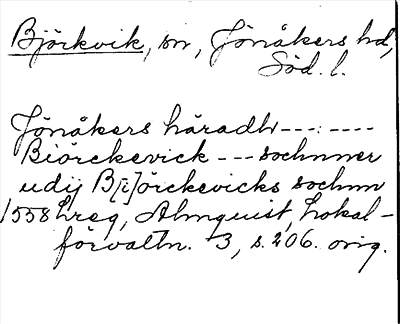 Björkvik, sn, Jönåkers hd,
Söd. l.
Jönåkers häradh ---:----
Biörckevick --- sochnner
udij B[i]örckevicks sochnn
1558 hreg, Almquist, Lokal-
förvaltn. 3, s. 206. orig.